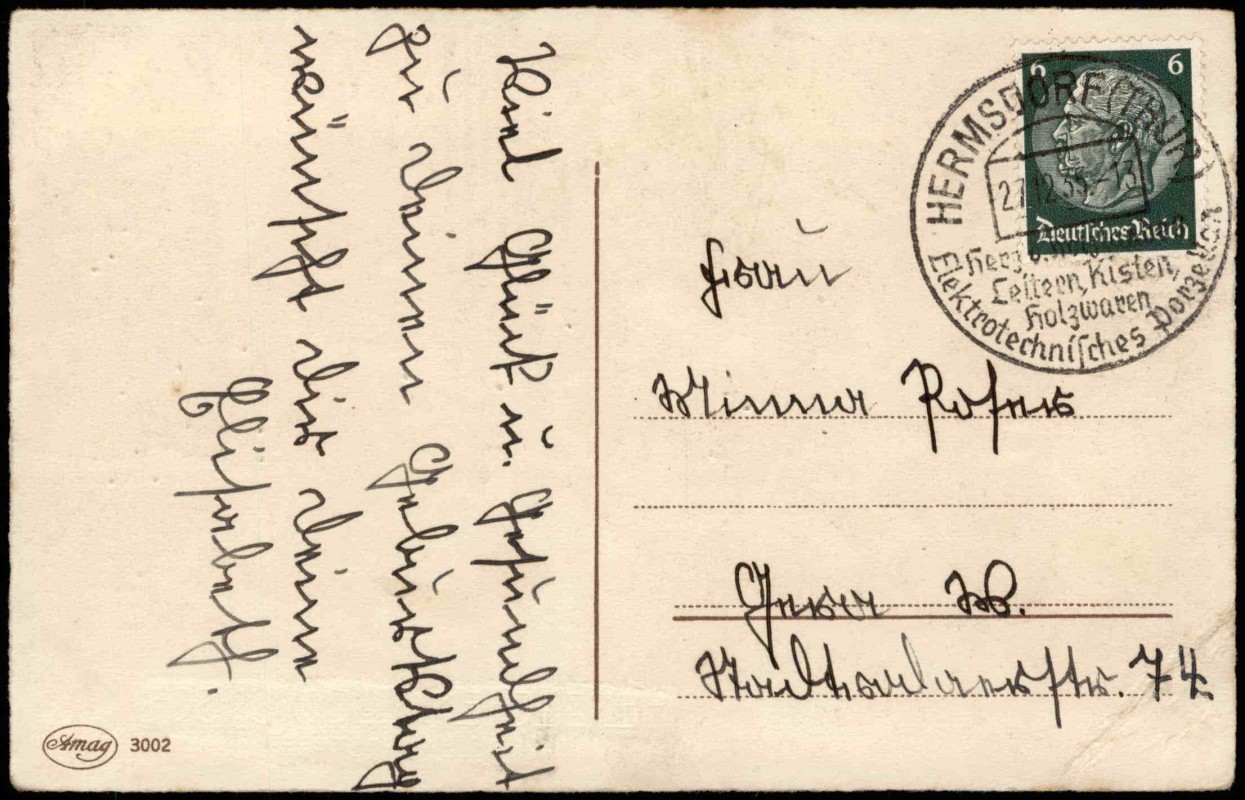 Viel Glück u. Gesundheit
zu deinem Geburtstag
wünscht dir deine
Elisabeth.
Frau
Minna
Gera
Stadtrodaerstr. 74
6
6
Deutsches Reich
HERMSDORF (THÜR)
27.12.35.-13
Leitern, Kisten,
Holzwaren
Elektrotechnisches Porzellan
Amag 3002